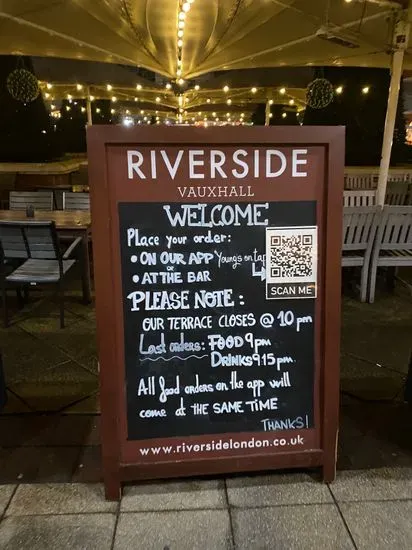 RIVERSIDE
VAUXHALL
WELCOME
Place your order:
• ON OUR APP Youngs on tap
or
• AT THE BAR
SCAN ME
PLEASE NOTE:
OUR TERRACE CLOSES @ 10 pm
Last orders: FOOD 9pm
DRINKS 9 15 pm
All food orders on the app will
come at THE SAME TIME
THANKS!
www.riversidelondon.co.uk